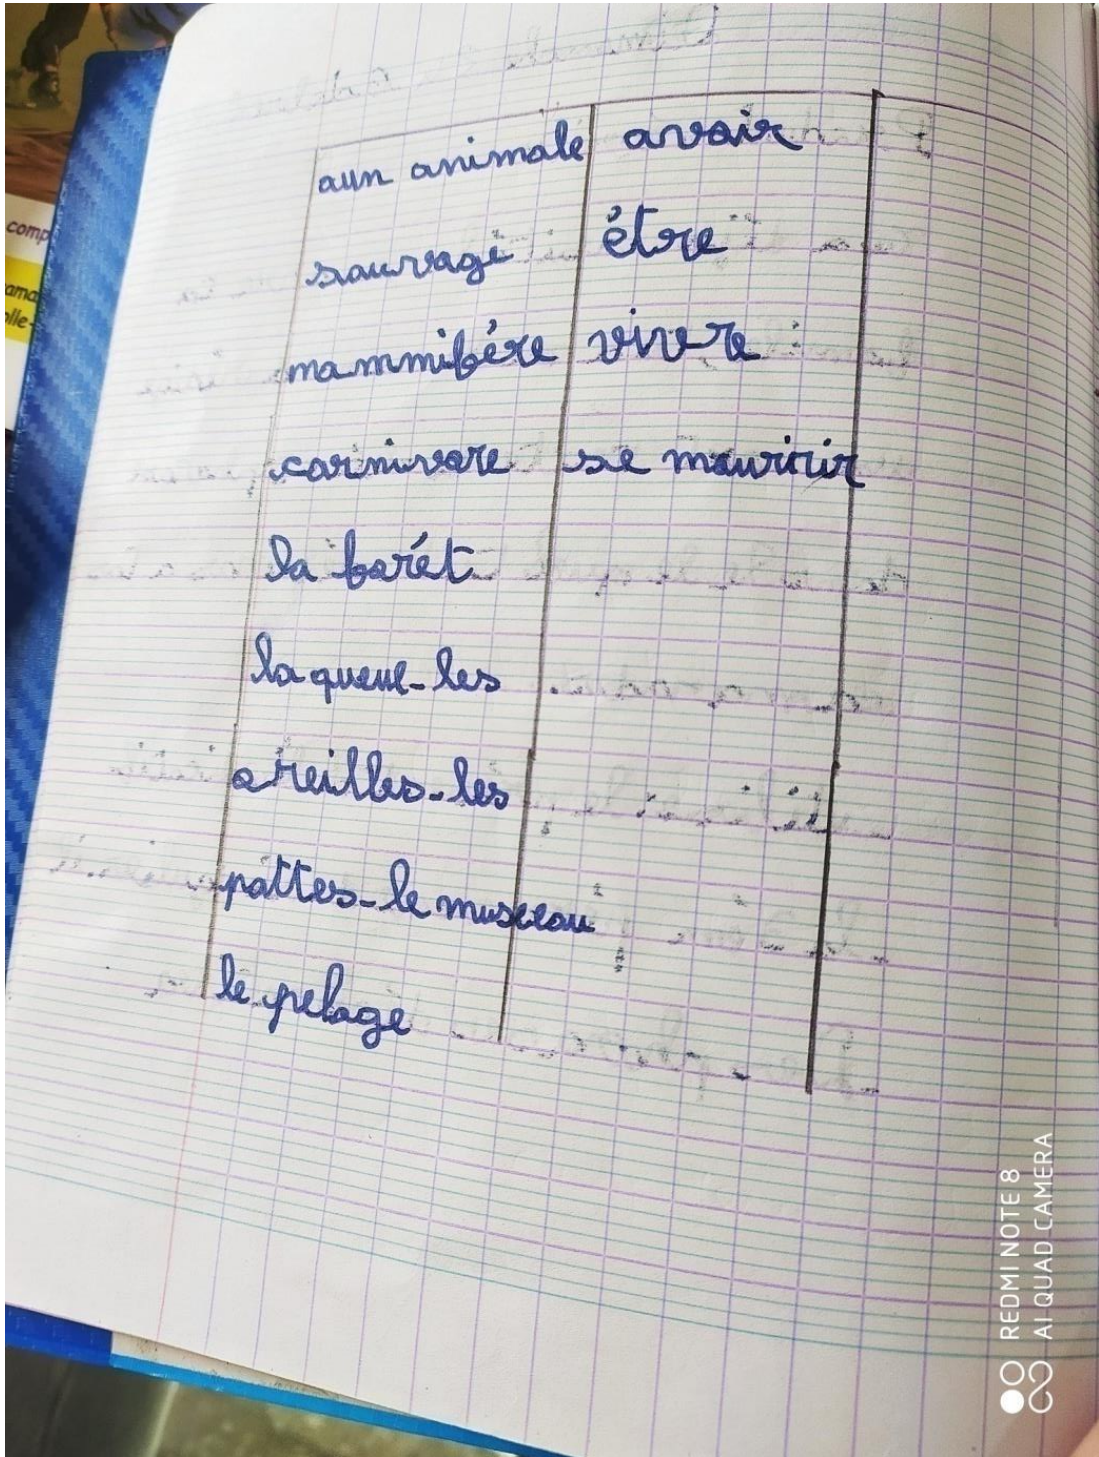 aun animale avoir
sauvage étre
mammifére vivre
carnivore se mouririr
la forét
la queue-les
oreilles-les
pattes-le museeau
le pelage
comp
ama
olle-
REDMI NOTE 8
AI QUAD CAMERA